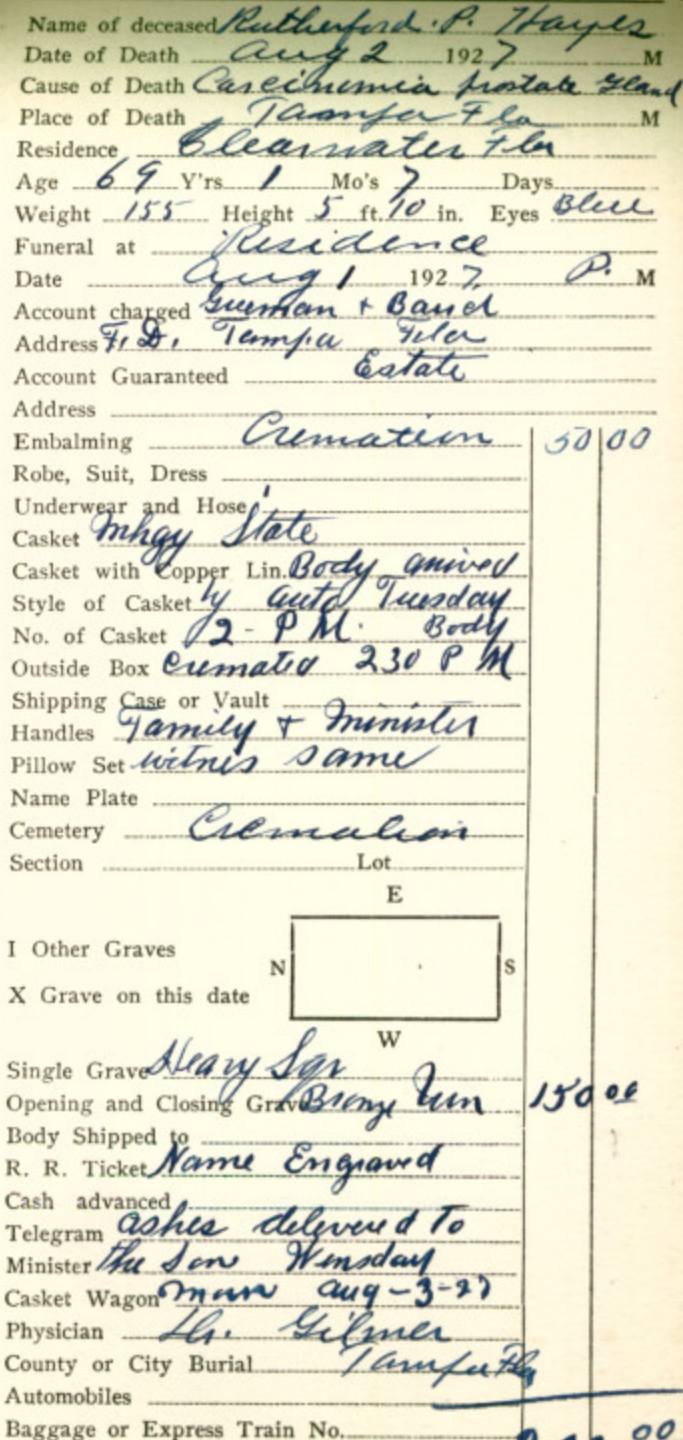 Name of deceased Rutherford. P. Hayes
Date of Death Aug 2 1927 M
Cause of Death Carcinomia prostate Gland
Place of Death Tampa Fla M
Residence Clearwater Fla
Age 69 Y'rs 1 Mo's 7 Days
Weight 155 Height 5 ft. 10 in. Eyes Blue
Funeral at Residence
Date Aug 1 1927. P. M
Account charged + Band
Address F. D. Tampa Fla
Account Guaranteed Estate
Address
Embalming Cremation 50 00
Robe, Suit, Dress
Underwear and Hose
Casket Mhgy State
Casket with Copper Lin. Body arived
Style of Casket by auto Tuesday
No. of Casket 2 - P M. Body
Outside Box Cremated 230 P M
Shipping Case or Vault
Handles Family + Minister
Pillow Set witnes same
Name Plate
Cemetery Cremation
Section Lot
E
I Other Graves
N S
X Grave on this date
W
Single Grave Heavy Sqr
Opening and Closing Grave Bronze Urn 150 00
Body Shipped to
R. R. Ticket Name Engraved
Cash advanced
Telegram ashes delivered to
Minister the Son Wensday
Casket Wagon Morn Aug-3-27
Physician Dr. Gilmer
County or City Burial Tampa Fla
Automobiles
Baggage or Express Train No. 00